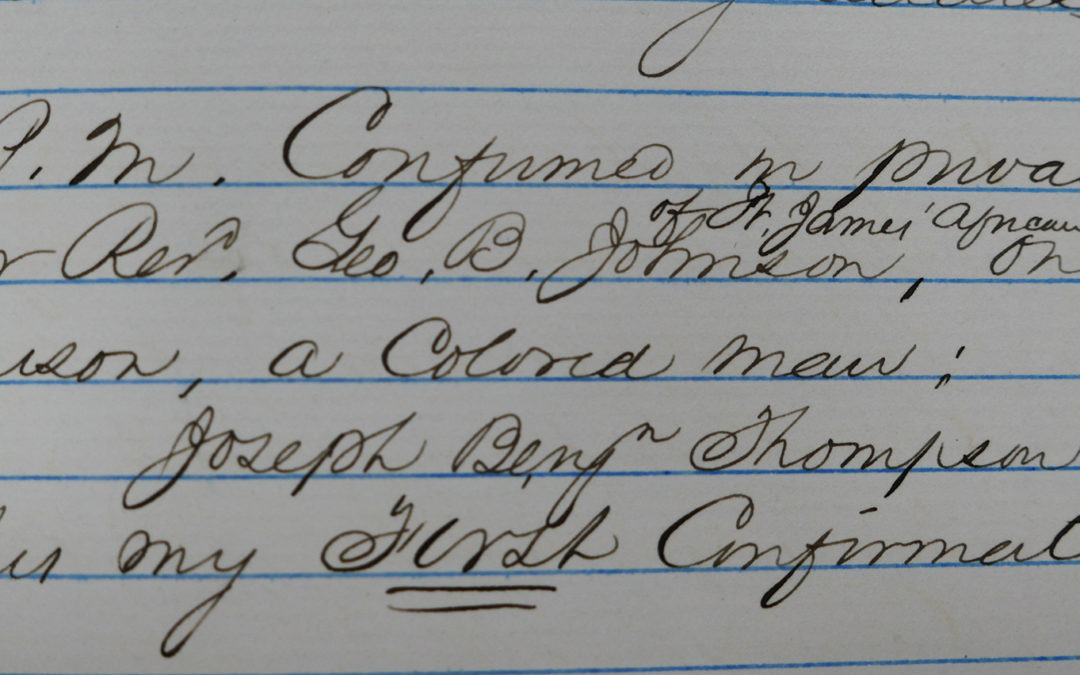 P. M. Confirmed in priva
of St. James' African
r Revd. Geo. B. Johnson, on
ison, a Colored man;
Joseph Benjn Thompson
is my First Confirmat